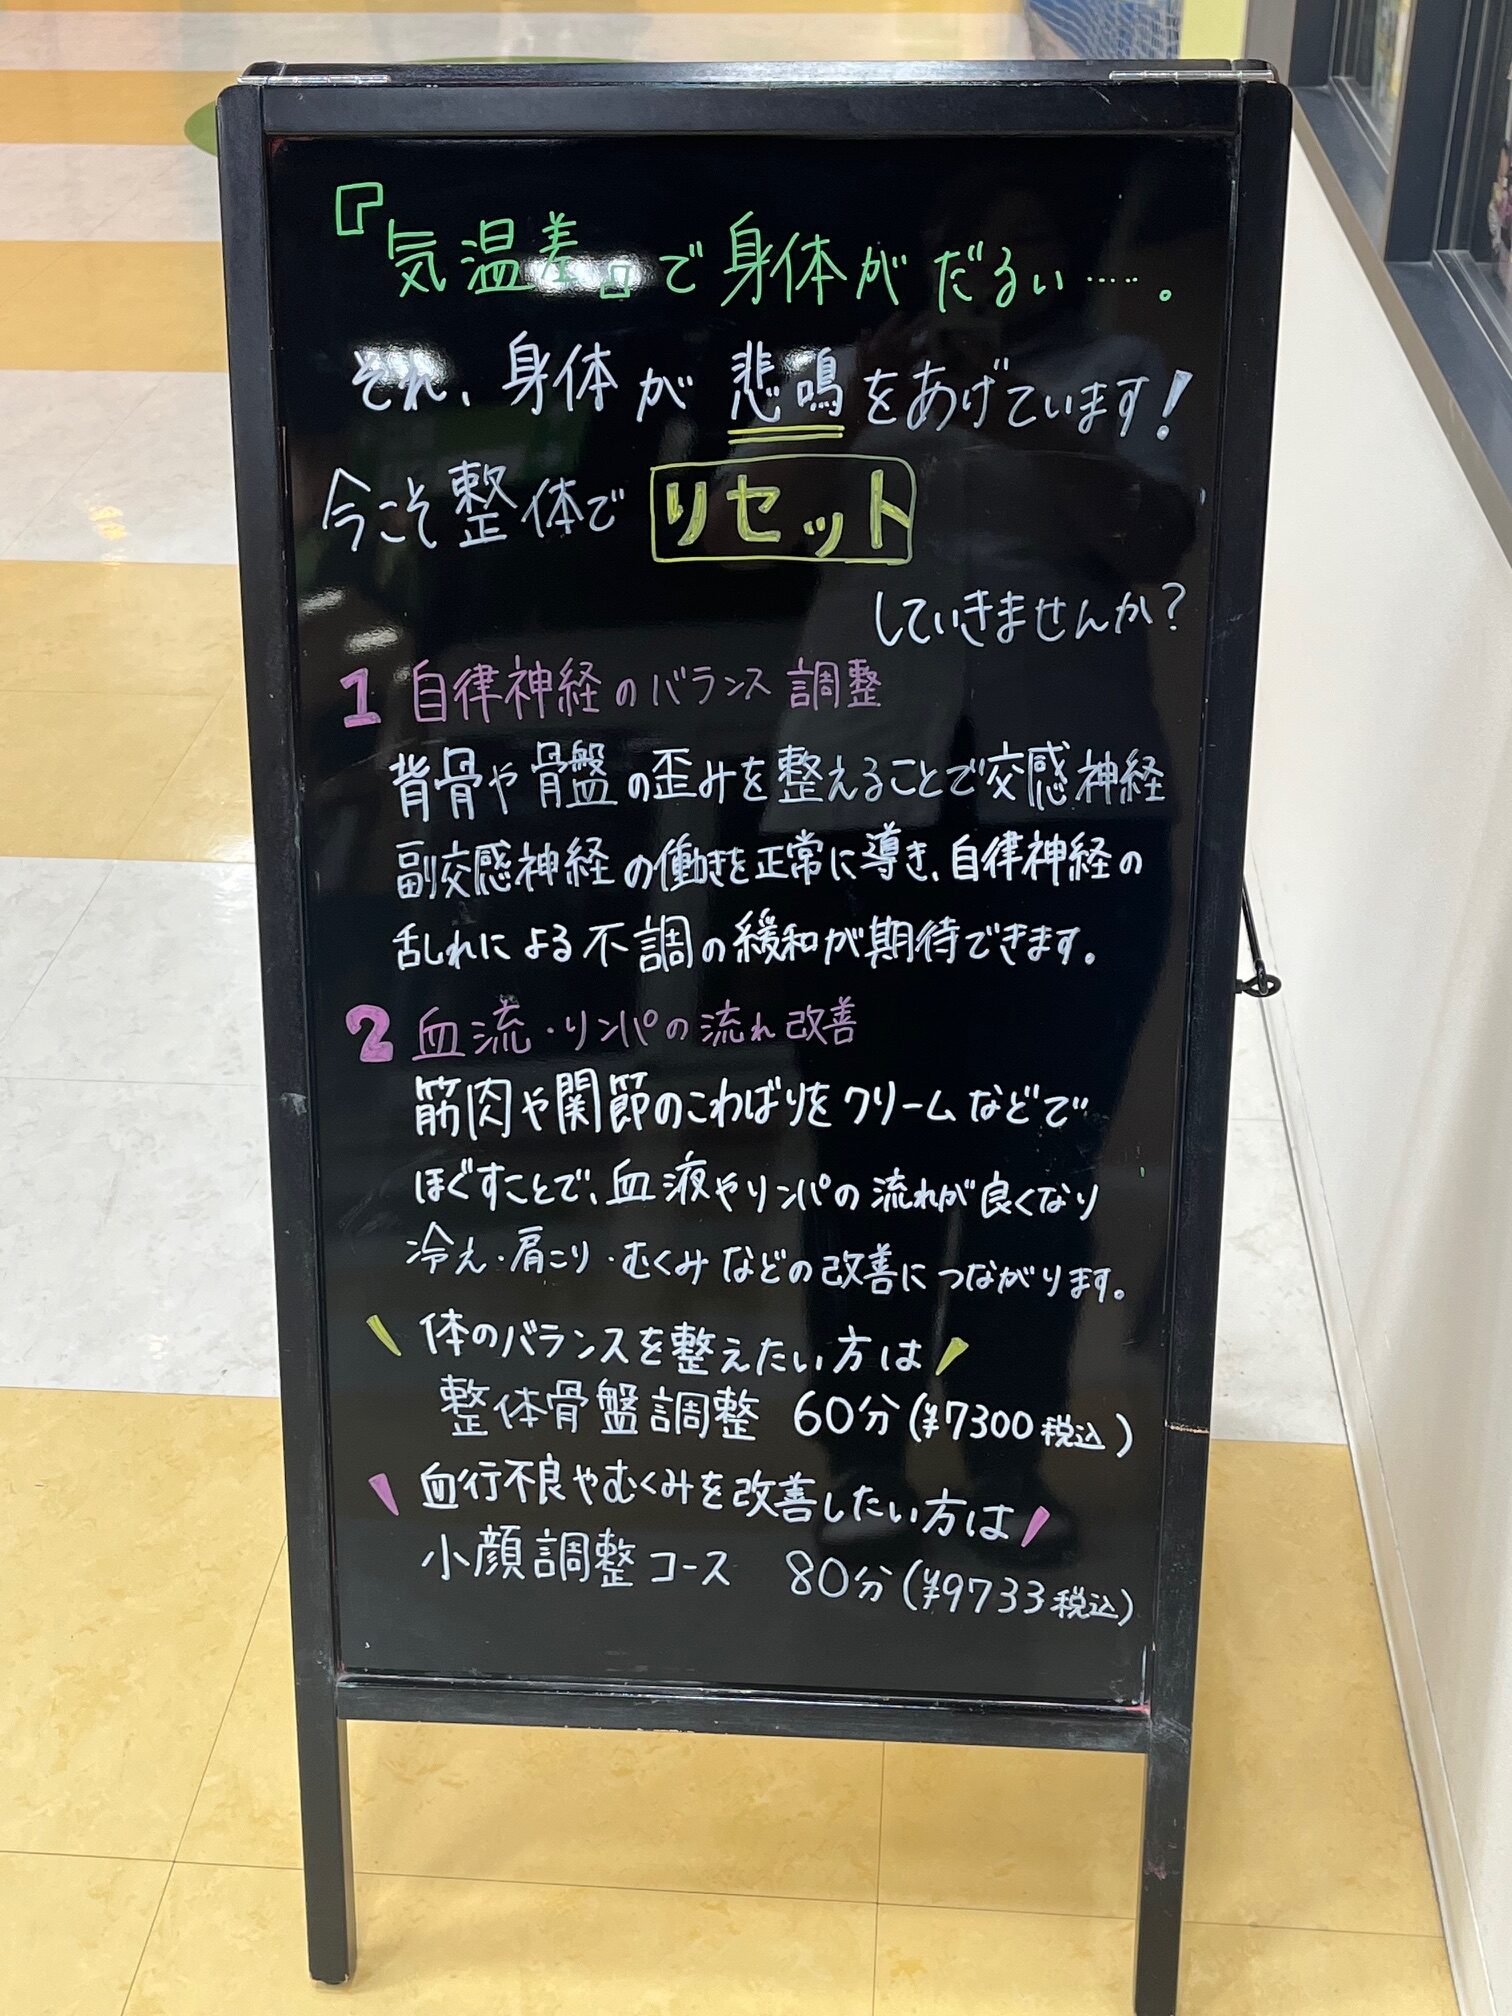 『気温差』で身体がだるい……。
それ、身体が悲鳴をあげています!
今こそ整体でリセット
していきませんか?
1 自律神経のバランス調整
背骨や骨盤の歪みを整えることで交感神経
副交感神経の働きを正常に導き、自律神経の
乱れによる不調の緩和が期待できます。
2 血流・リンパの流れ改善
筋肉や関節のこわばりをクリームなどで
ほぐすことで、血液やリンパの流れが良くなり
冷え・肩こり・むくみなどの改善につながります。
体のバランスを整えたい方は
整体骨盤調整 60分(¥7300税込)
血行不良やむくみを改善したい方は
小顔調整コース 80分(¥9733税込)